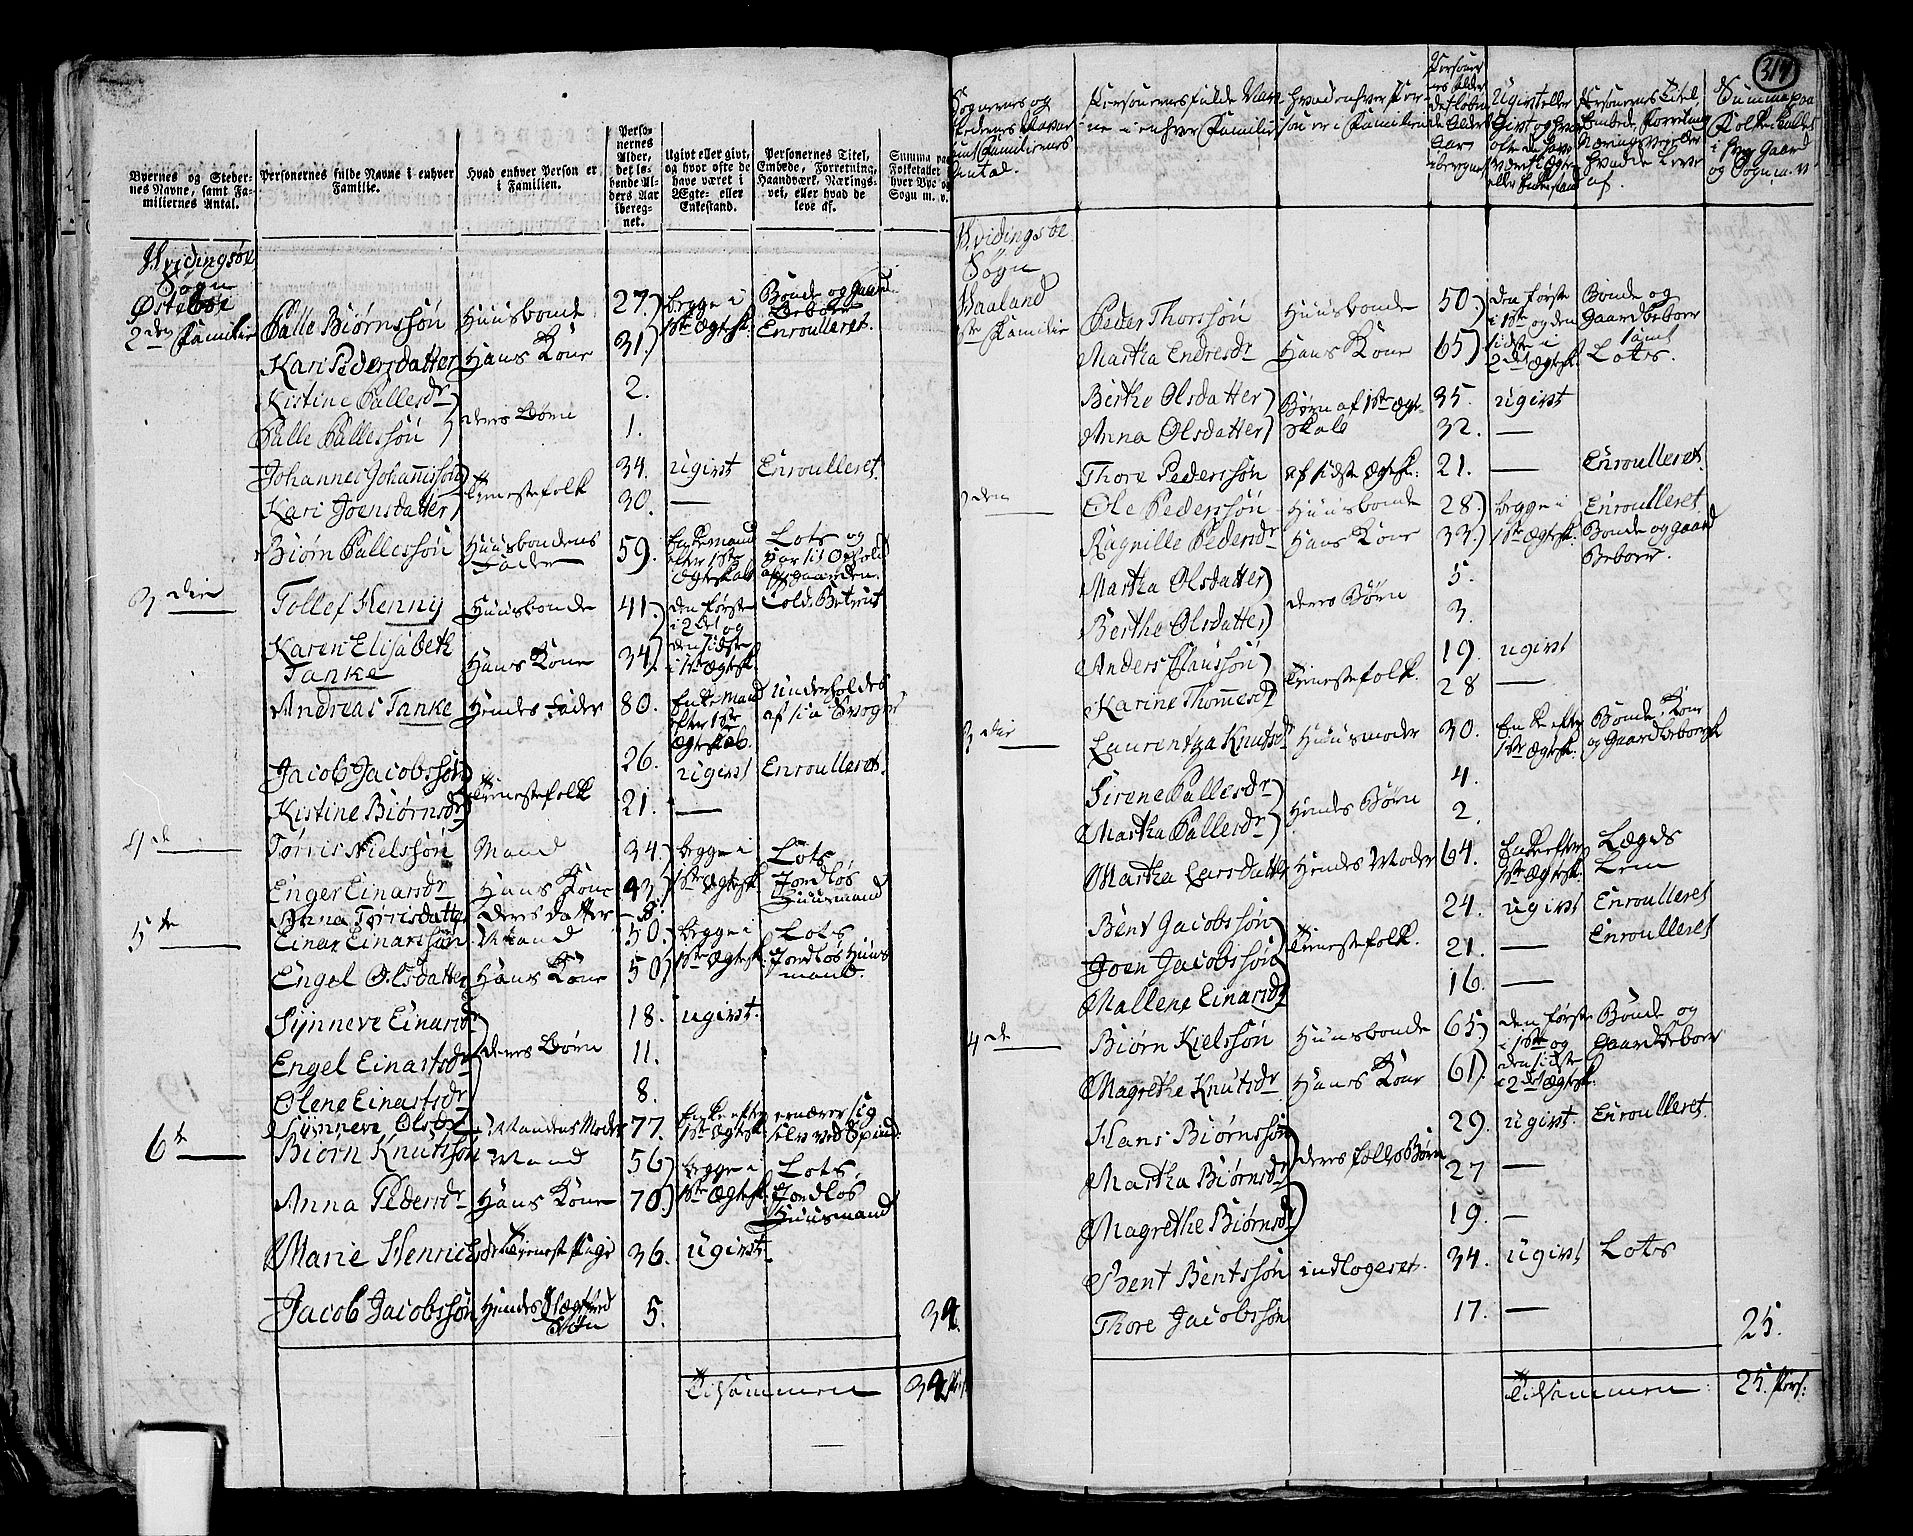 Byernes og Steder-
nes Navne, samt Fa-
miliernes Antal.
Personernes fulde Navne i enhver
Familie.
Hvad enhver Person er
i Familien.
Perso-
nernes
Alder,
det lø-
bende Al-
ders Aar
ibereg-
net.
Ugivt eller givt,
og hvor ofte de
have været i
Ægte- eller
Enkestand.
Personernes Titel,
Embede, Forretning,
Haandværk, Nærings-
vei, eller hvad de
leve af.
Summa paa
Folketallet i
hver Bye og
Sogn m. v.
Hvidingsøe
Sogn
Østebøe
2den Familie Palle Biørnssøn Huusbonde 27) begge i Bonde og Gaard
1ste Ægtesk. Beboer Enroulleret.
Kari Pedersdatter Hans Kone 31.)
Kistine Pallesdr deres Børn 2.
Palle Pallessøn 1.
Johannes Johannssøn Tienestefolk 34. ugivt Enroulleret.
Kari Joensdatter 30. —
Biørn Pallessøn Huusbondens Fader 59. Enkemand efter 1ste Ægteskab Lots og
3die Tollef Henny Huusbonde 41.) den første i 2det og
Karen Elisabeth Tanke Hans Kone 34). den sidste i 1ste Ægtesk.
Andreas Tanke Hendes Fader 80. Enkemand efter 1ste Ægteskab. underholdes af sin Svoger
Jacob Jacobssøn Tienestefolk 26. ugivt Enroulleret.
Kistine Biørnsdr 21. —
4de Torris Nielssøn Mand 34.) begge i 1ste Ægtesk. Lots Jordløs Huusmand
Enger Einarsdr Hans Kone 43)
Anna Torresdatter deres Datter 8.
5te Einar Einarssøn Mand 50. begge i 1ste Ægtesk. Lots Jordløs Huusmand.
Engel Olsdatter Hans Kone 50)
Synneve Einarsdr 18. ugivt.
Engel Einarsdr deres Børn 11.
Olene Einarsdr 8.
Synneve Olsdr Mandens Moder 77. Enke efter 1ste Ægtesk. ernærer sig selv ved Spind.
6te Biørn Knutssøn Mand 56) begge i 1ste Ægtesk. Lots, Jordløs Huusmand
Anna Pedersdr Hans Kone 70.)
Marie Henrichsdr Tieneste Pige 36. ugivt
Jacob Jacobssøn Hendes Søn 5. 34.
Tilsammen 34 Pers:
314
Sognernes og
Stedernes Navne
samt Familiernes
Antal.
Personernes fulde Nav-
ne i enhver Familie
hvad enhver Per-
son er i Familien
Personer
nes Alder
det løben
de Alders
Aar
iberegnet
Ugivt eller
Givt og hvor
ofte de have
været i Ægte
eller Enkestand
Personernes Titel,
Embede, Forretning
Næringsvej eller
hvad de leve
af.
Summa paa
Folke-Tallet
i hver Gaard
og Sogn m. v.
Hvidingsøe
Sogn
Vaaland
1ste Familie Peder Thorssøn Huusbonde 50) den første i 1ste og den Bonde og Gaardbeboer samt Lots.
Martha Endresdr Hans Kone 65) sidste i 2det Ægtesk.
Berthe Olsdatter Børn af 1ste Ægteskab 35. ugivt
Anna Olsdatter 32. —
Thore Pederssøn af sidst Ægtesk: 21. — Enroulleret.
2den Ole Pederssøn Huusbonde 28.) begge i 1ste Ægtesk. Enroulleret Bonde og Gaard Beboer.
Ragnille Pedersdr Hans Kone 33.)
Martha Olsdatter deres Børn 5.
Berthe Olsdatter 3.
Anders Claussøn Tienestefolk. 19. ugivt
Karine Thomesdr 28 —
3die Laurentza Knutsdr Huusmoder 30. Enke efter 1ste Ægtesk. Bonde Kone og Gaardbeboersk
Sirene Pallesdr Hendes Børn 4.
Martha Pallesdr 2.
Martha Larsdatter Hendes Moder 64. Enke efter 1ste Ægtesk. Lægds Lem
Bent Jacobssøn 24. ugivt Enroulleret
Joen Jacobssøn Tienestefolk. 21. — Enroulleret
Mallene Einarsdr 16. —
4de Biørn Kielssøn Huusbonde 65) den første i 1ste og Bonde og Gaardbeboer
Magrethe Knutsdr Hans Kone 61). den sidste i 2det Ægtesk.
Hans Biørnssøn 29. ugivt. Enroulleret.
Martha Biørnsdr deres fælles Børn 27 —
Magrethe Biørnsdr 19. —
Bent Bentssøn indlogeret. 34. ugivt Lots
Thore Jacobssøn 17. — 25.
Tilsammen: 25. Pers: